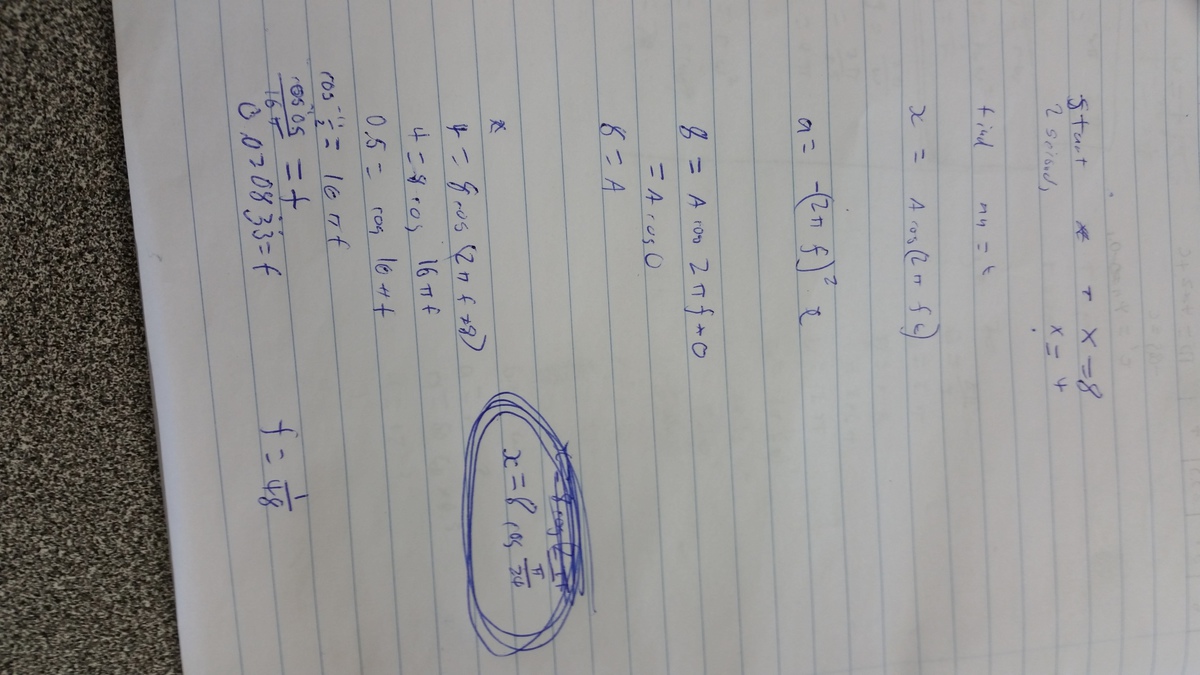 start t x = 8
2 seconds, x = 4
find an = t
x = A cos(2π f t)
a = -(2π f)² x
8 = A cos 2π f * 0
= A cos 0
8 = A
*
4 = 8 cos (2π f * 8)
4 = 8 cos 16 π f
0.5 = cos 16 π f
cos⁻¹ ½ = 16 π f
cos⁻¹ 0.5 / 16 π = f
0.0208333 = f
f = 1/48
x = 8 cos π/24